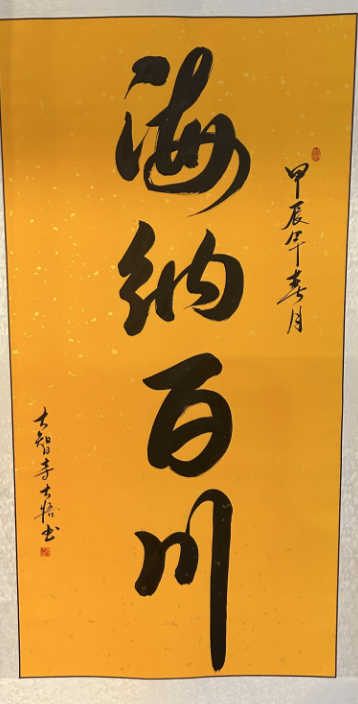 甲辰年春月
海纳百川
大智寺大悟书